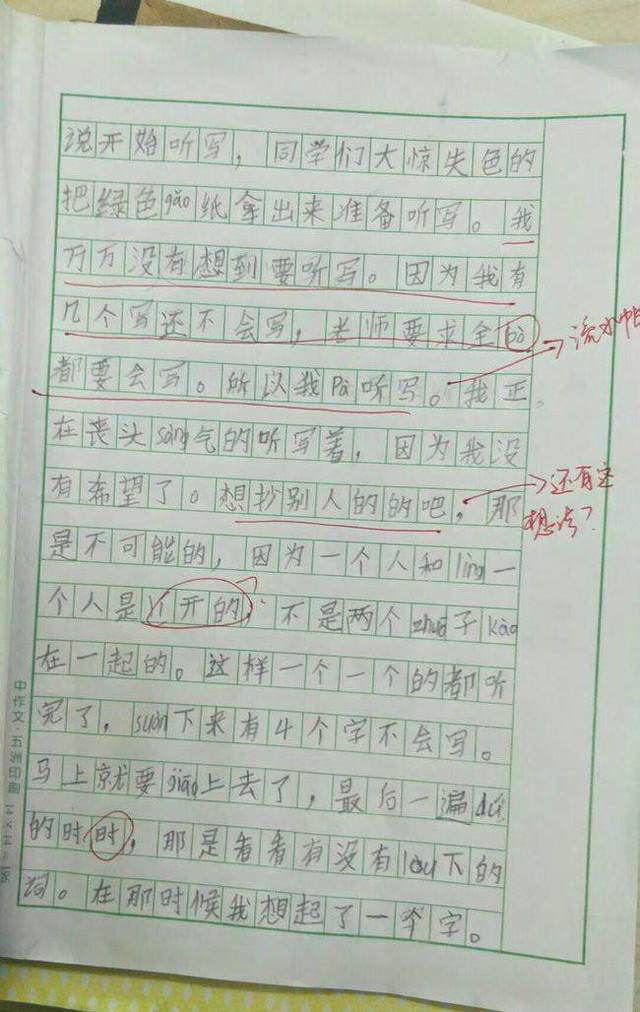 说开始听写，同学们大惊失色的
把绿色gǎo纸拿出来准备听写。我
万万没有想到要听写。因为我有
几个写还不会写，老师要求全bù
都要会写。所以我Pà听写。我正
流水帐
在丧头sàng气的听写着，因为我没
有希望了。想抄别人的的吧，那
还有这
想法？
是不可能的，因为一个人和lìng一
个人是开的，不是两个zhuō子kào
在一起的。这样一个一个的都听
完了，suàn下来有4个字不会写。
马上就要jiāo上去了，最后一遍dú
的时时，那是看看有没有lòu下的
词。在那时候我想起了一个字。